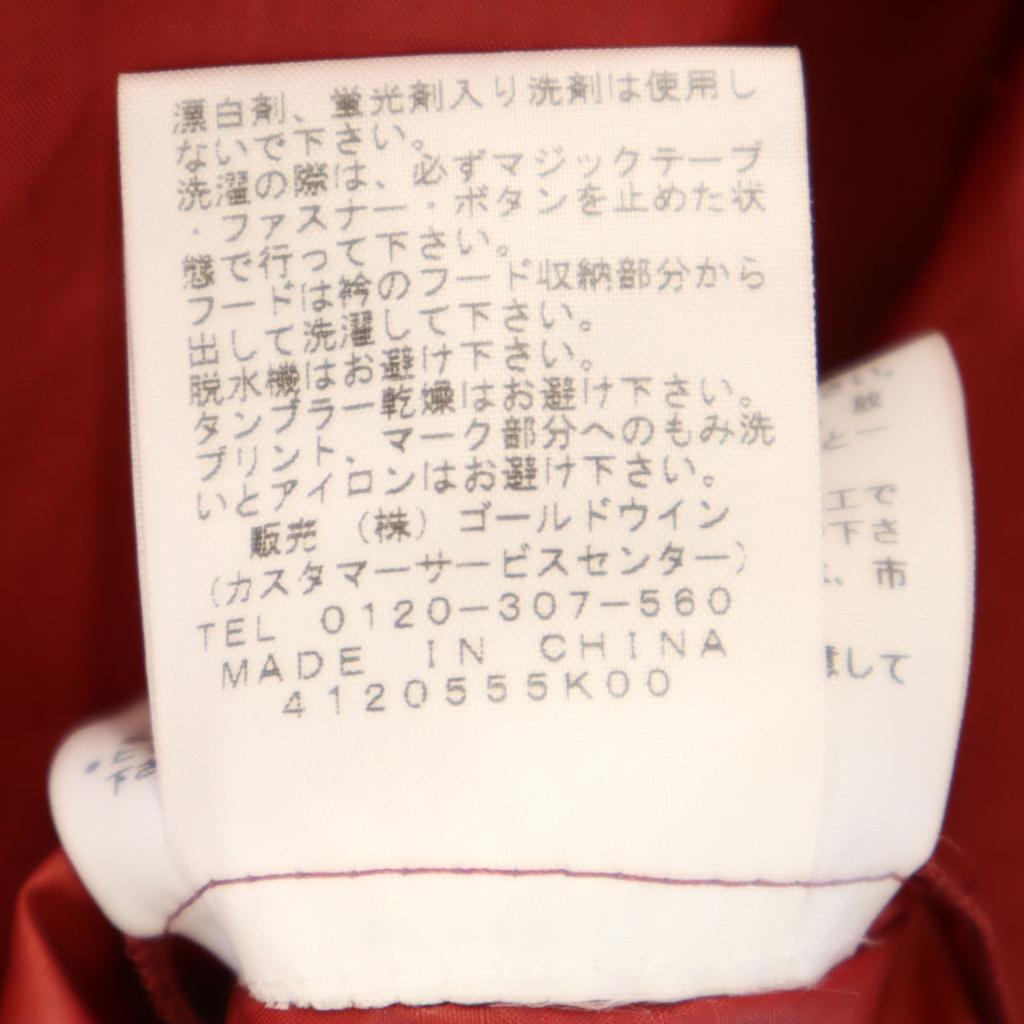 漂白剤、蛍光剤入り洗剤は使用し
ないで下さい。
洗濯の際は、必ずマジックテープ
・ファスナー・ボタンを止めた状
態で行って下さい。
フードは衿のフード収納部分から
出して洗濯して下さい。
脱水機はお避け下さい。
タンブラー乾燥はお避け下さい。
プリント、マーク部分へのもみ洗
いとアイロンはお避け下さい。
販売 (株) ゴールドウイン
(カスタマーサービスセンター)
TEL 0120-307-560
MADE IN CHINA
4120555K00
放
と一
工で
下さ
、市
意して
下さ